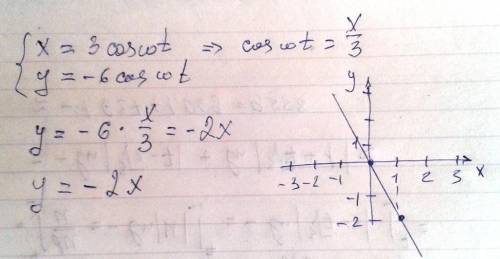 x = 3 cos ωt => cos ωt = x/3
y = -6 cos ωt
y = -6 · x/3 = -2x
y = -2x
y
1
-3 -2 -1 1 2 3 x
-1
-2